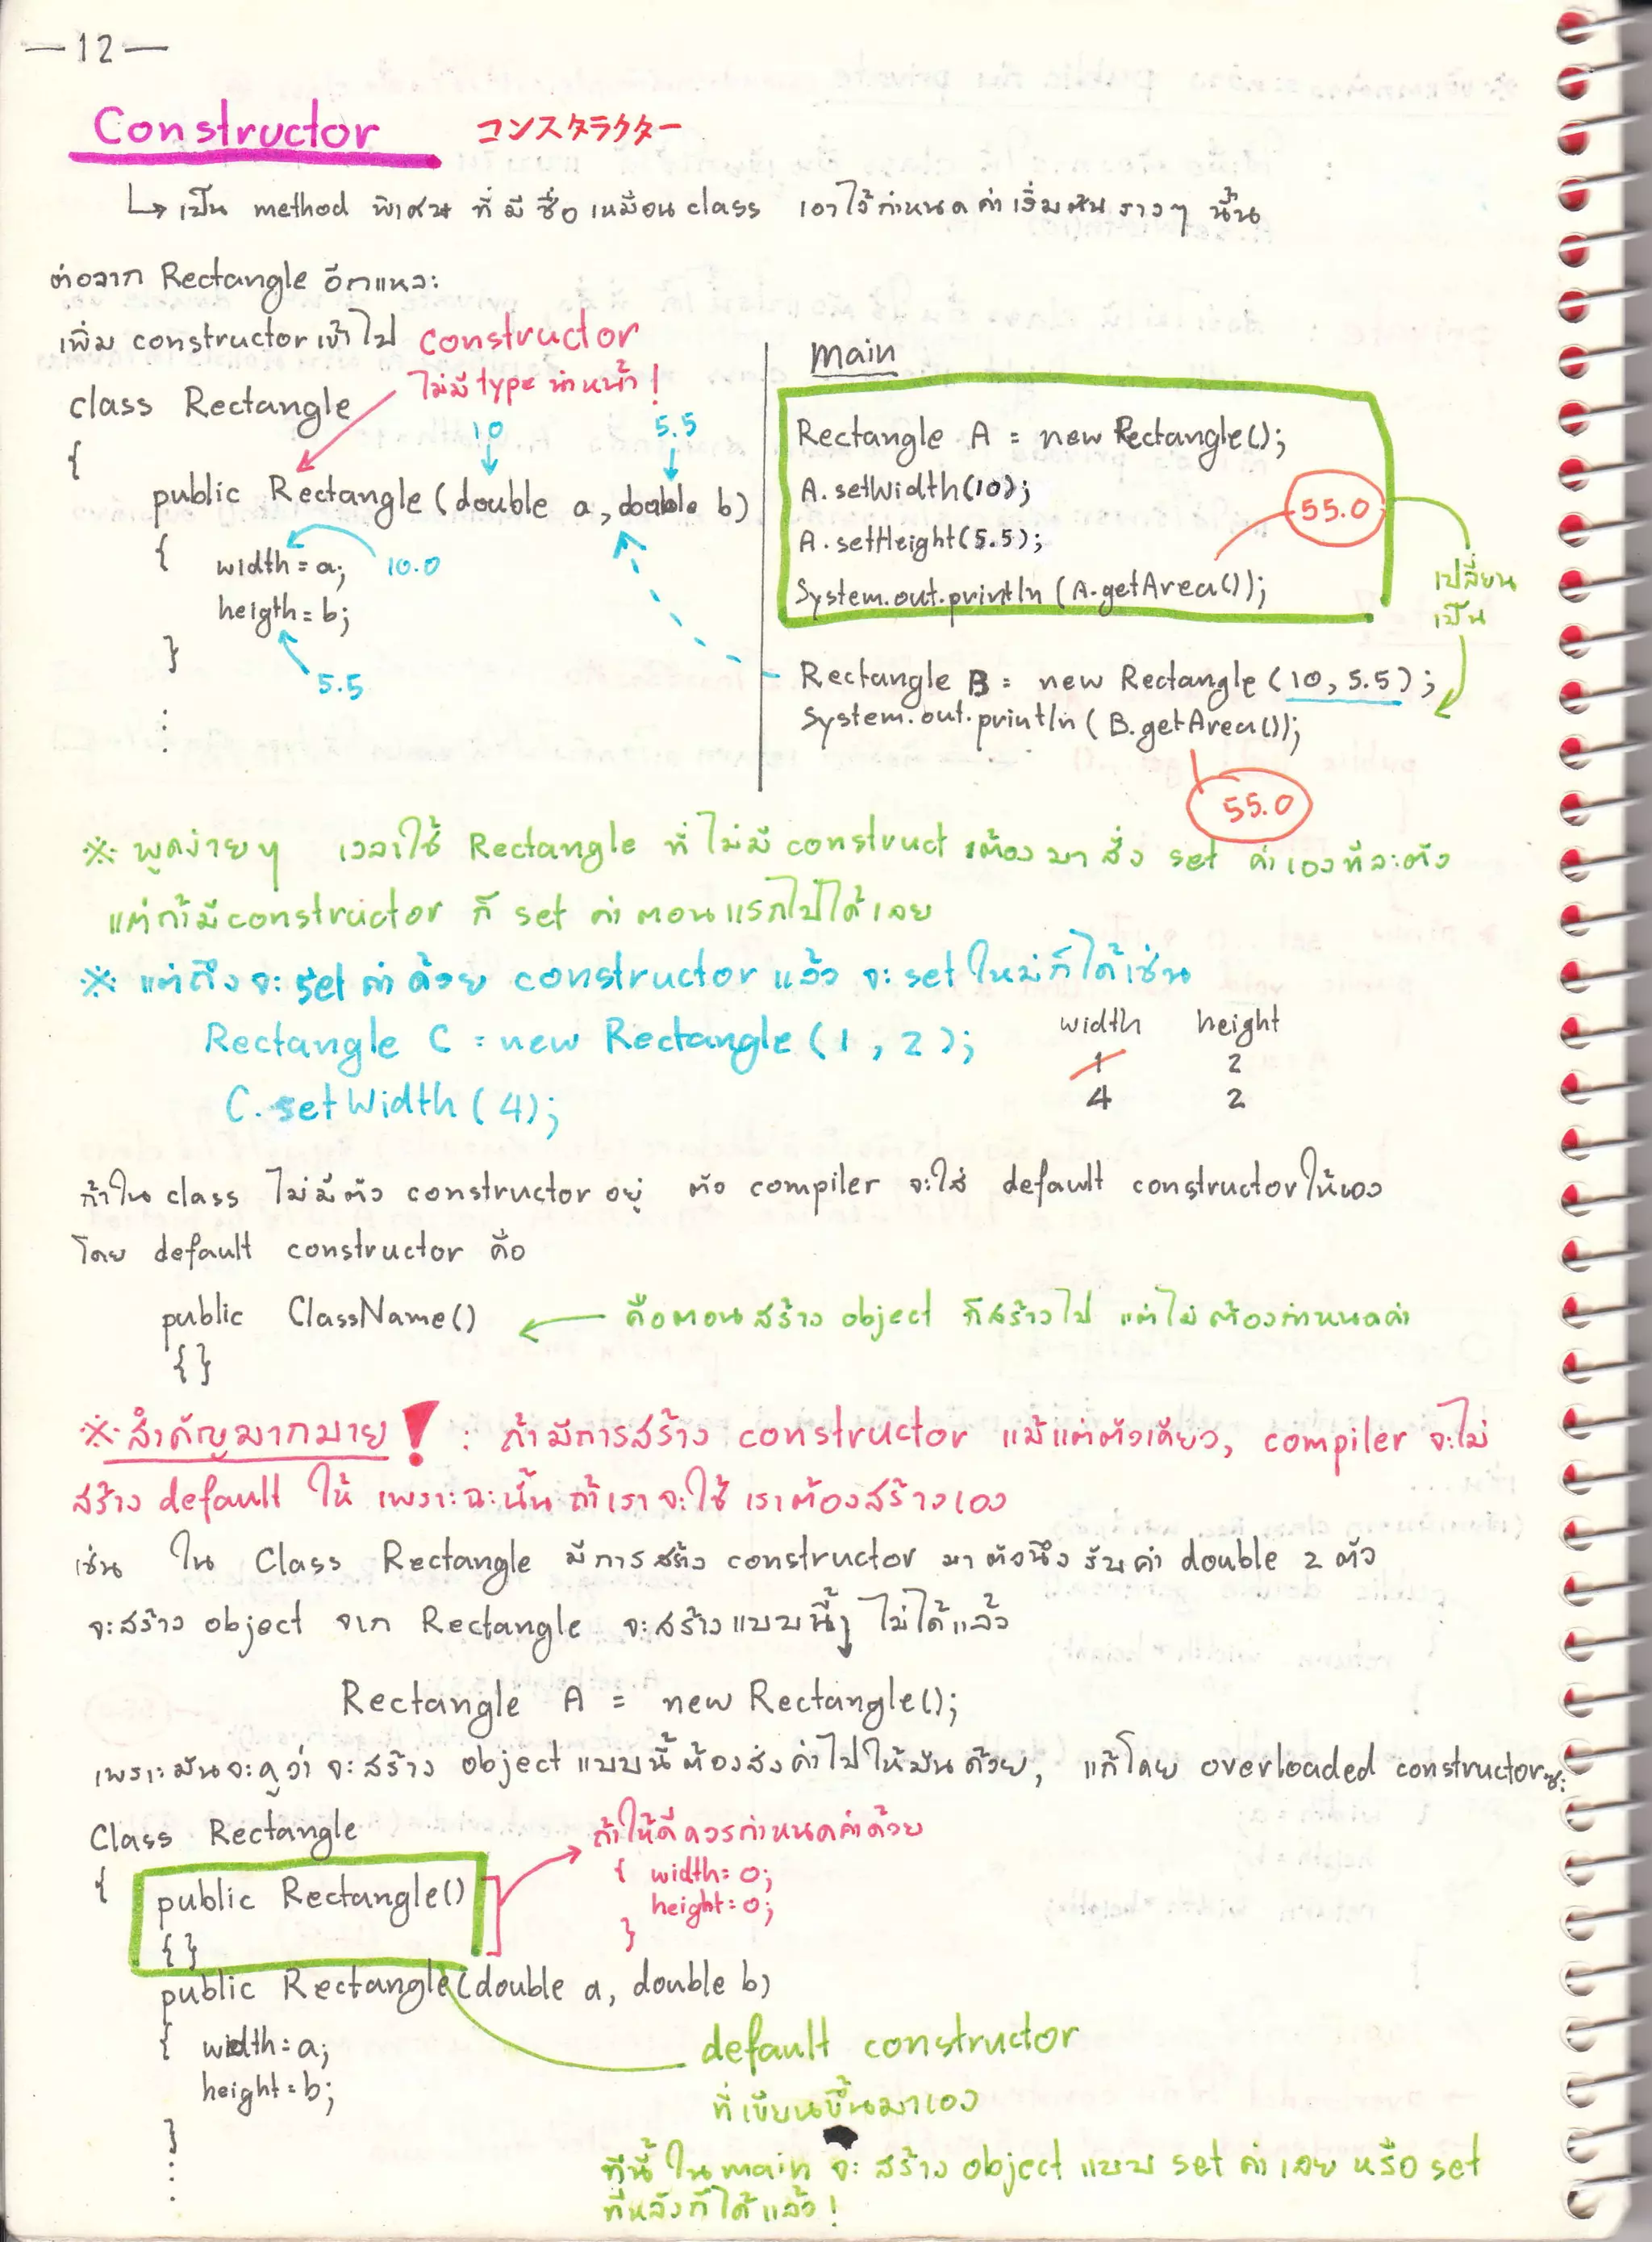 —12—
Constructor コンスタラクター
↳ เป็น method พิเศษ ที่ มี ชื่อ เหมือน class เอาไว้กำหนด ค่าเริ่มต้น รางๆ นั้น
ต่อจาก Rectangle อีกแหละ
เพิ่ม constructor เข้าไป
constructor
ไม่มี type นำหน้า !
class Rectangle
{
10 5.5
public Rectangle (double a, double b)
{ width = a; 10.0
heigth = b;
}
5.5
⋮
main
Rectangle A = new Rectangle();
A.setWidth(10);
A.setHeight(5.5);
System.out.println (A.getArea());
55.0
เปลี่ยน
เป็น
Rectangle B = new Rectangle (10, 5.5);
System.out.println (B.getArea());
55.0
※ พูดง่ายๆ เวลาใช้ Rectangle ที่ ไม่มี construct ต้อง มา สั่ง set ค่าเองทีละตัว
แต่ถ้ามี constructor ก็ set ค่า ตอนแรกไปได้เลย
※ แต่ถึงจะ set ค่า ด้วย constructor แล้ว จะ set ใหม่ก็ได้เช่น
Rectangle C = new Rectangle (1, 2);
C.setWidth (4);
width height
1 2
4 2
ถ้าใน class ไม่มีตัว constructor อยู่ ตัว compiler จะใส่ default constructor ให้เอง
โดย default constructor คือ
public ClassName() ← คือตอนสร้าง object ก็สร้างไป แต่ไม่ ต้องกำหนดค่า
{}
※ สำคัญมากมาย ! : ถ้ามีการสร้าง constructor แม้แต่ตัวเดียว, compiler จะไม่
สร้าง default ให้ เพราะฉะนั้น ถ้าเราจะใช้ เราต้องสร้างเอง
เช่น ใน Class Rectangle มีการสร้าง constructor มาตัวนึง รับค่า double 2 ตัว
จะสร้าง object จาก Rectangle จะสร้างแบบนี้ๆ ไม่ได้แล้ว
Rectangle A = new Rectangle();
เพราะมันจะดูว่า จะสร้าง object แบบนี้ต้องส่งค่าไปให้มันด้วย, แก้โดย overloaded constructor ซะ
Class Rectangle
{ public Rectangle()
{}
ถ้าให้ดีควรกำหนดค่าด้วย
{ width = 0;
height = 0;
}
public Rectangle(double a, double b)
{ width = a;
height = b;
}
⋮
default constructor
ที่เขียนขึ้นมาเอง
ทีนี้ ใน main จะ สร้าง object แบบ set ค่าเลย หรือ set
ทีหลังก็ได้แล้ว !